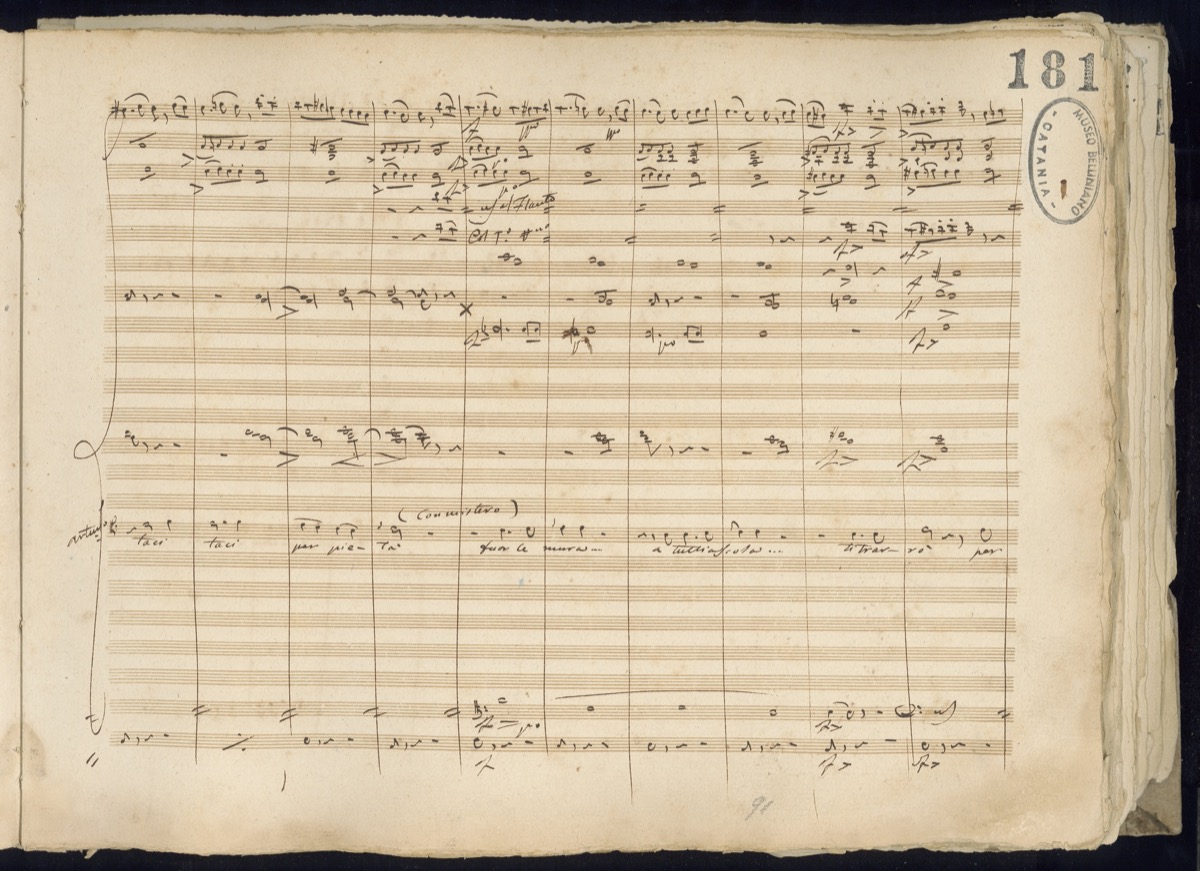 181
MUSEO BELLINIANO
- CATANIA -
col Flauto
(con mistero)
taci taci per pie- tà fuor le mura... a tutti ascosa... ti trar- rò per
91